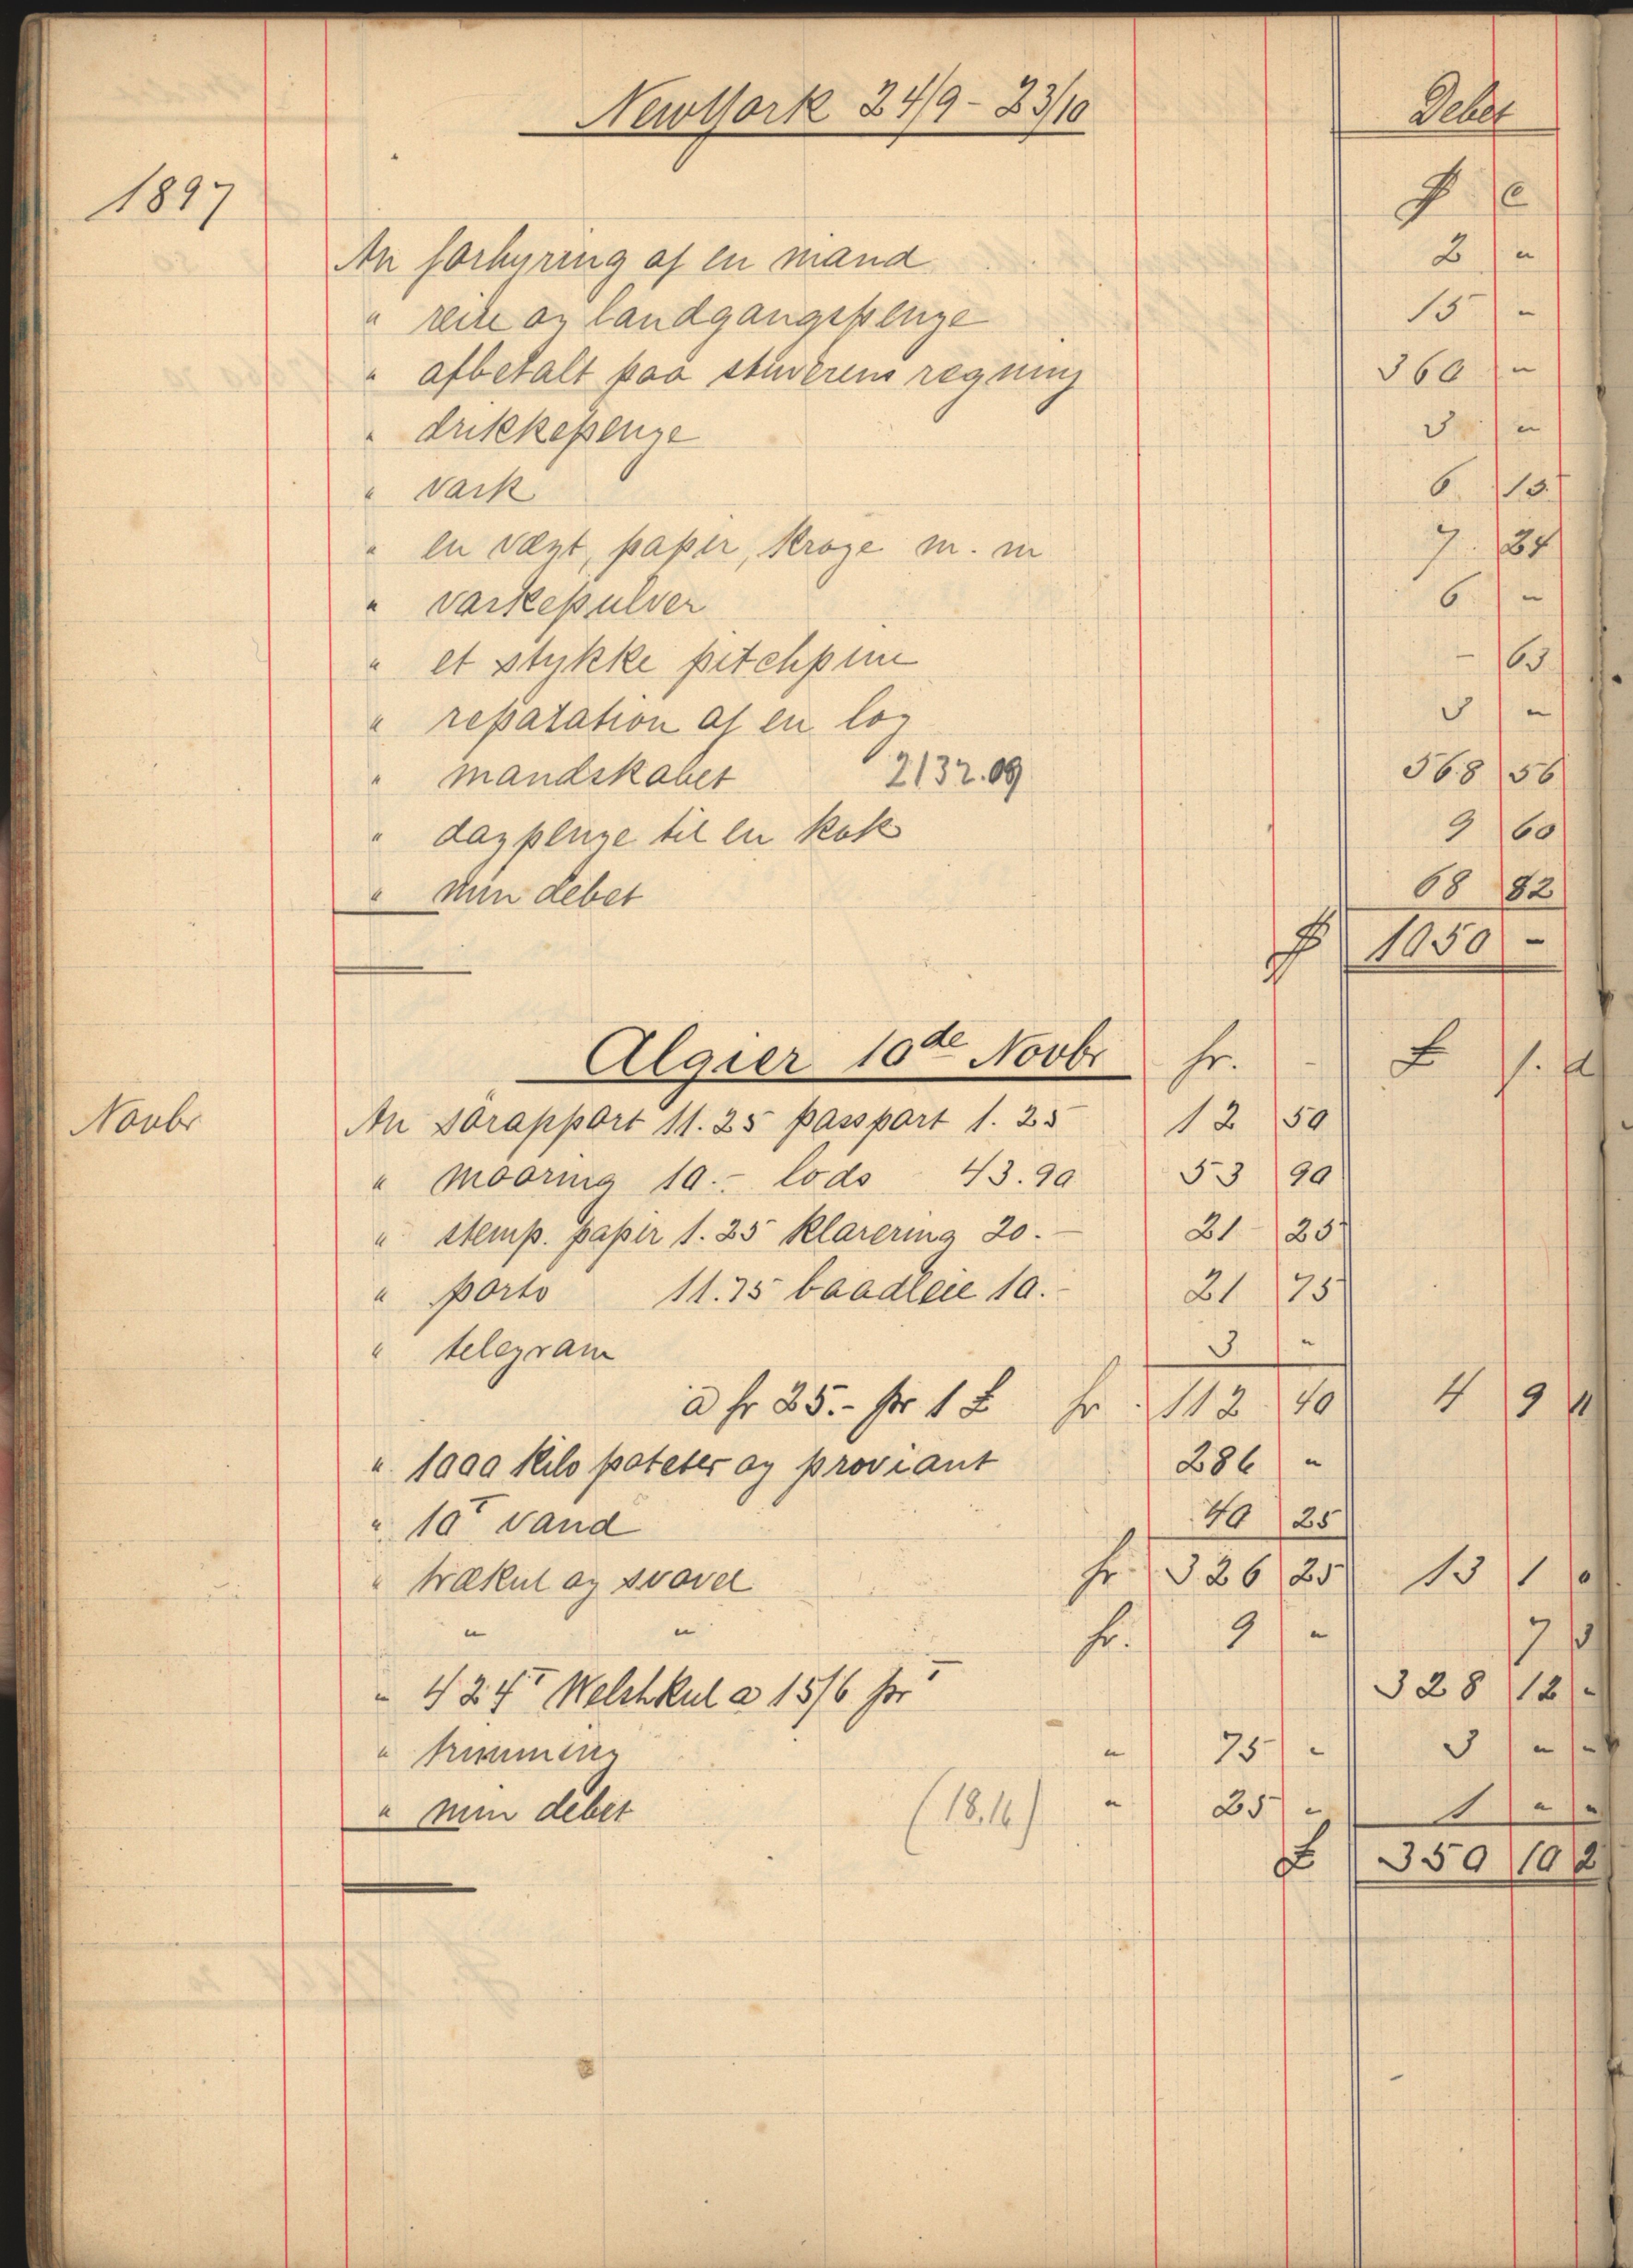 NewYork 24/9 - 23/10 Debet
1897 $ c
An forhyring af en mand 2 "
" reise og landgangspenge 15 -
" afbetalt paa stuverens regning 360 "
" drikkepenge 3 "
" vask 6. 15
" en vægt, papir, kroge m. m 7. 24
" vaskepulver 6 -
" et stykke pitchpine - 63
" reparation af en log 3 "
" mandskabet 2132.09 568 56
" dagpenge til en kok 9 60
" min debet 68 82
$ 1050 -
Algier 10de Novbr fr. £ s. d
Novbr An sörapport 11.25 passport 1.25 12 50
" mooring 10.- lods 43.90 53 90
" stemp. papir 1.25 klarering 20.- 21 25
" porto 11.75 baadleie 10.- 21 75
" telegram 3 "
à fr 25.- pr 1 £ fr. 112 40 4 9 11
" 1000 kilo poteter og proviant 286 "
" 10T vand 40 25
" trækul og svovel fr. 326 25 13 1 0
" " fr. 9 " 7 3
" 424T Welshkul a 15/6 pr T 328 12 -
" trimming " 75 - 3 " -
" min debet (18.16) " 25 " 1 " "
£ 350 10 2